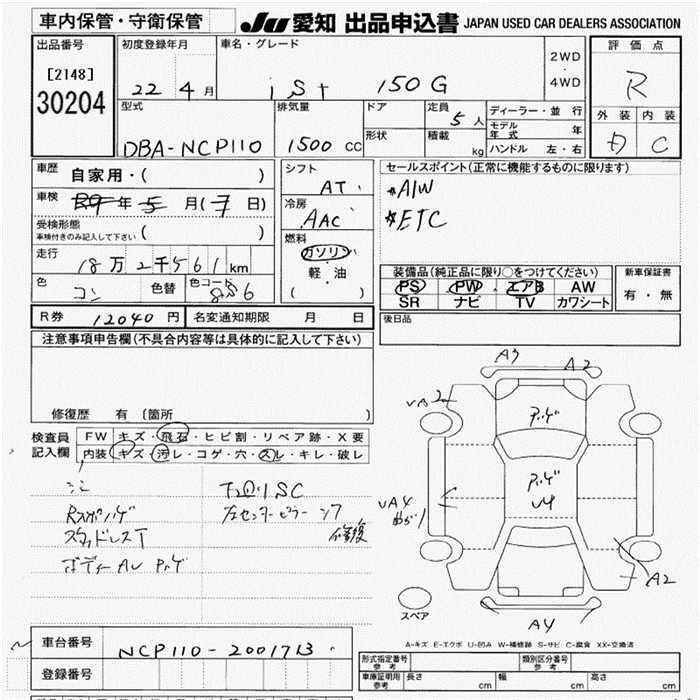 車内保管・守衛保管
JU 愛知 出品申込書 JAPAN USED CAR DEALERS ASSOCIATION
出品番号
[2148]
30204
初度登録年月
22 4 月
車名・グレード
ist 150G
2WD
・
4WD
評価点
R
外装 内装
C
型式
DBA-NCP110
排気量
1500 cc
ドア
形状
定員
5 人
積載
kg
ディーラー・並行
モデル年式 年
ハンドル 左・右
車歴
自家用・( )
車検
年 5 月(7 日)
受検形態
車検付きのみ記入して下さい ( )
走行
18万2千561km
色
コン
色替
色コード
8S6
シフト
AT
冷房
AAC
燃料
ガソリン
軽・油
( )
セールスポイント(正常に機能するものに限ります)
*A/W
*ETC
装備品(純正品に限り○をつけてください)
PS PW エアB AW
SR ナビ TV カワシート
新車保証書
有・無
R券 12040 円
名変通知期限 月 日
後日品
注意事項申告欄(不具合内容等は具体的に記入して下さい)
修復歴 有 〔箇所 〕
検査員記入欄
FW キズ・飛石・ヒビ割・リペア跡・X要
内装 キズ・汚レ・コゲ・穴・スレ・キレ・破レ
下回りSC
Rスポハゲ
左センターピラー
修復
スタッドレスT
ボディーAU
A3
A2
A2
A4
スペア
A-キズ E-エクボ U-凹み W-補修跡 S-サビ C-腐食 XX-交換済
車台番号
NCP110-2001713
登録番号
形式指定番号
参考
類別区分番号
参考
車庫証明用
参考
長さ cm 幅 cm 高さ cm